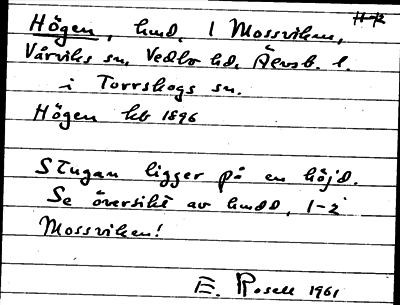 H-R
Högen, hmd. 1 Mossviken,
Vårviks sn, Vedbo hd, Älvsb. l.
i Torrskogs sn.
Högen kb 1896
Stugan ligger på en höjd.
Se översikt av hmdd, 1-2
Mossviken!
E. Rosell 1961